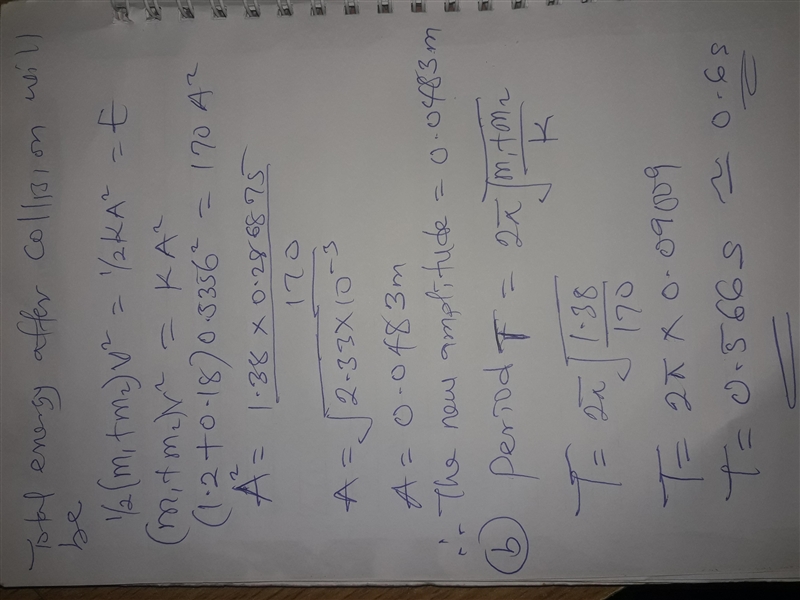 Total energy after collision will
be
½(m₁+m₂)V² = ½KA² = E
(m₁+m₂)V² = KA²
(1.2+0.18)0.5356² = 170A²
A² = 1.38 × 0.286875
170
A = √2.33×10⁻³
A = 0.0483m
∴ The new amplitude = 0.0483m
(b) Period T = 2π√m₁+m₂
K
T = 2π√1.38
170
T = 2π × 0.09009
T = 0.566s ≃ 0.6s